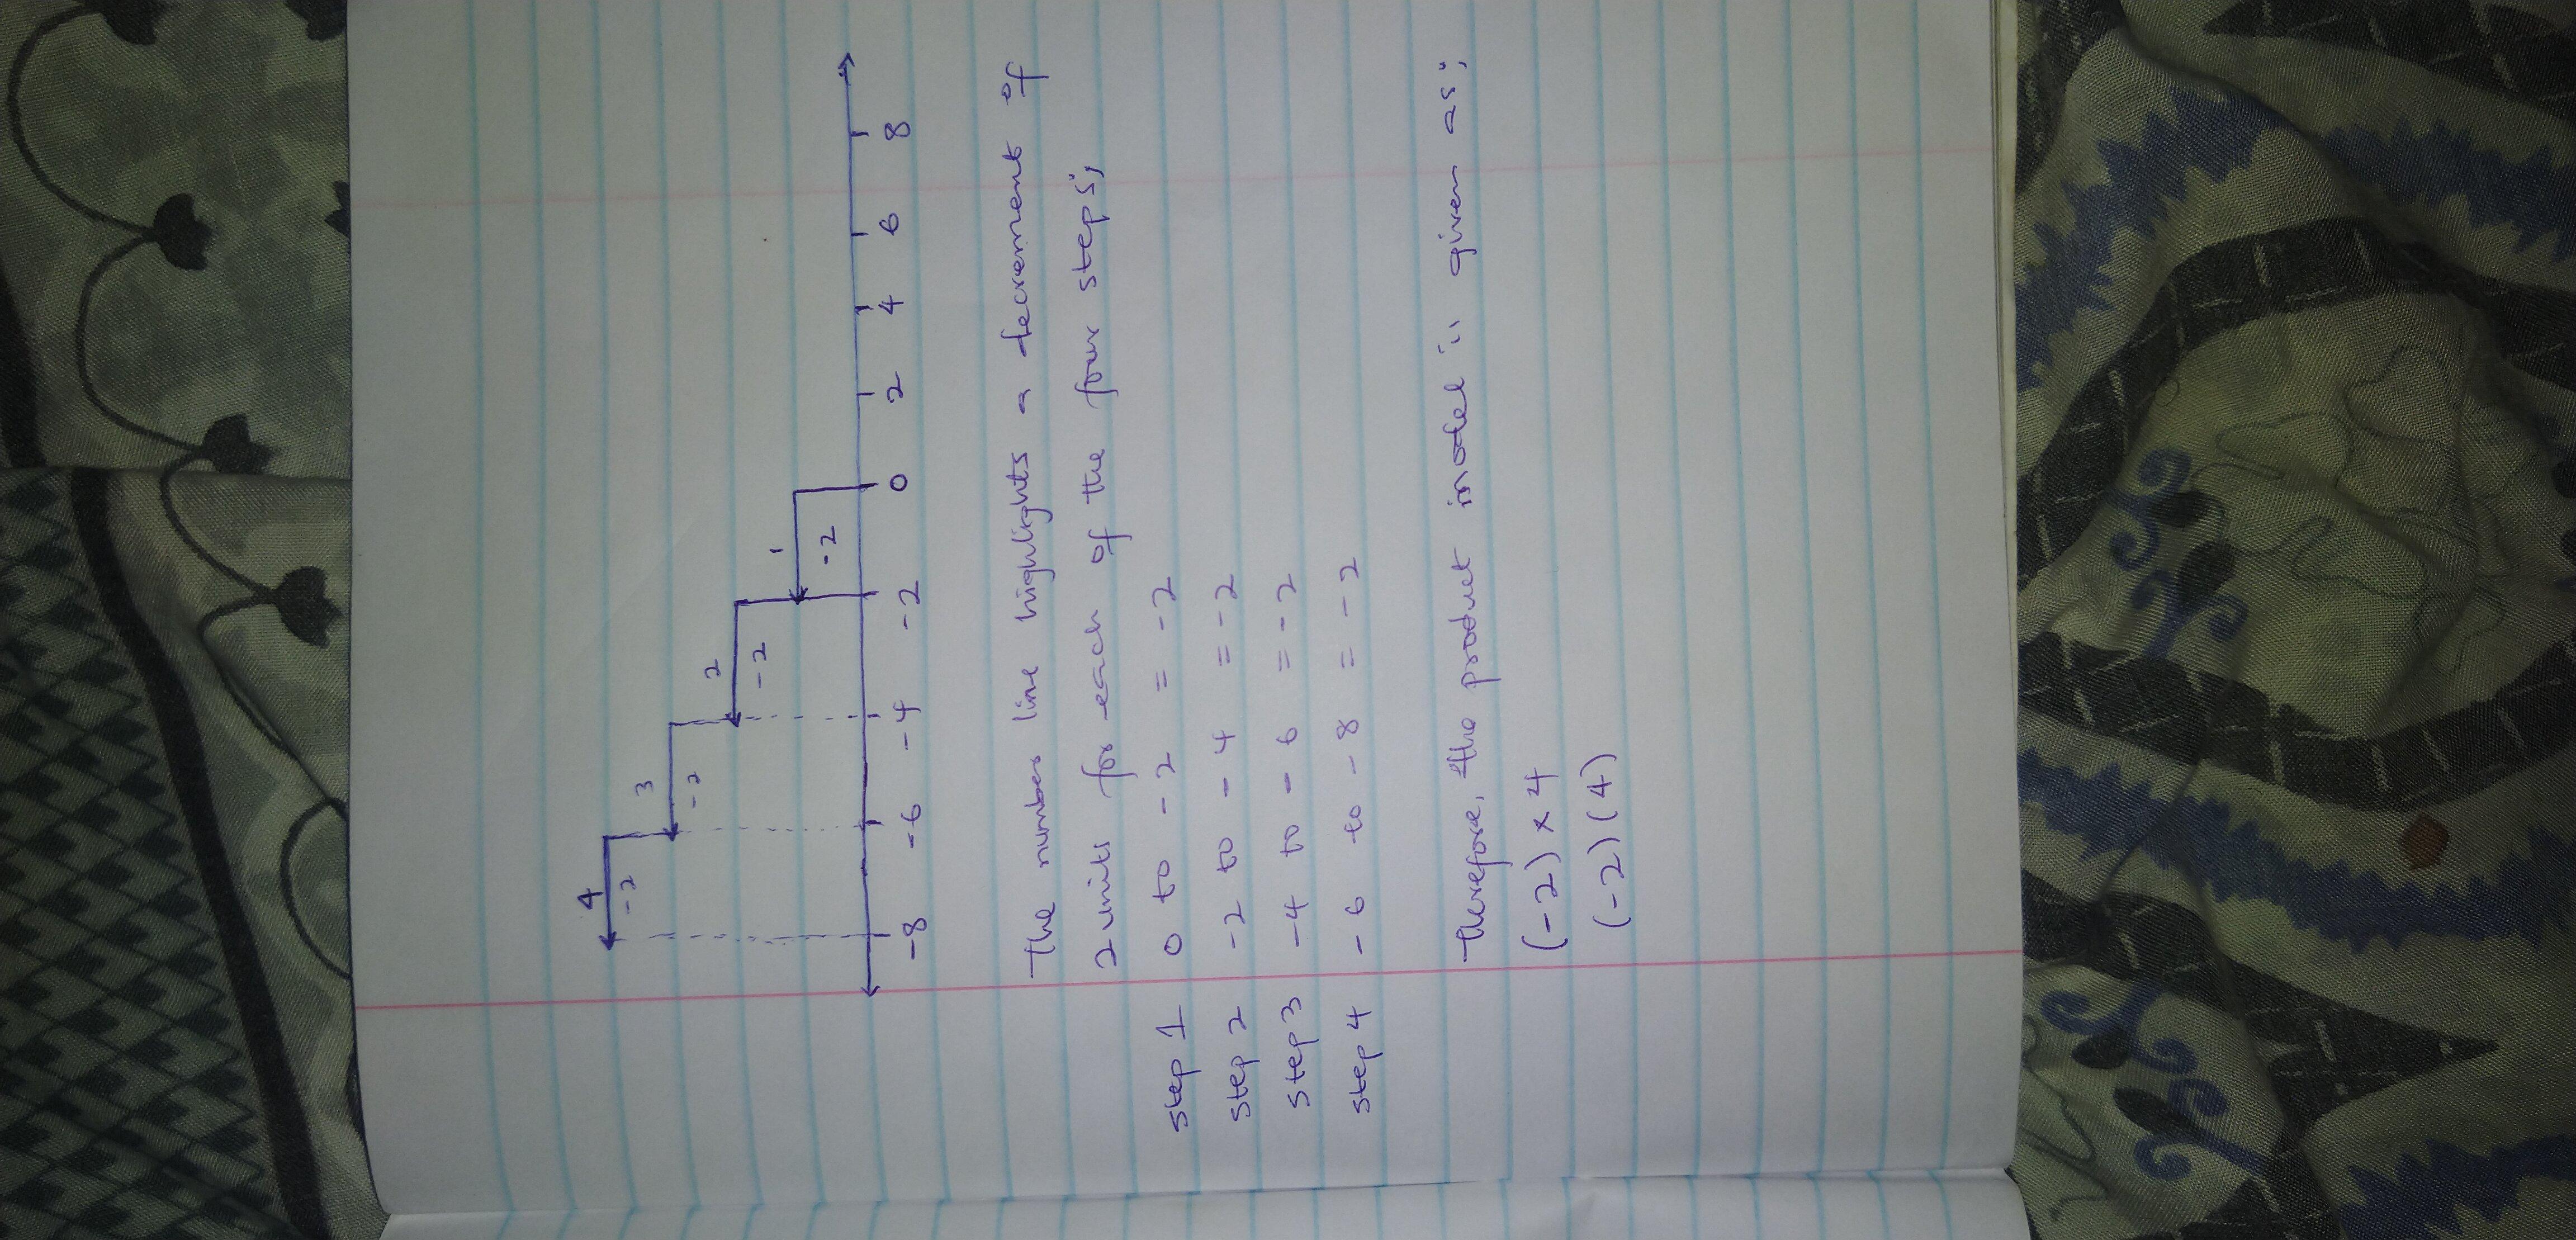 4
-2
3
-2
2
-2
1
-2
-8 -6 -4 -2 0 2 4 6 8
The number line highlights a decrement of
2 units for each of the four steps;
step 1 0 to -2 = -2
step 2 -2 to -4 = -2
step 3 -4 to -6 = -2
step 4 -6 to -8 = -2
Therefore, the product model is given as;
(-2) × 4
(-2)(4)